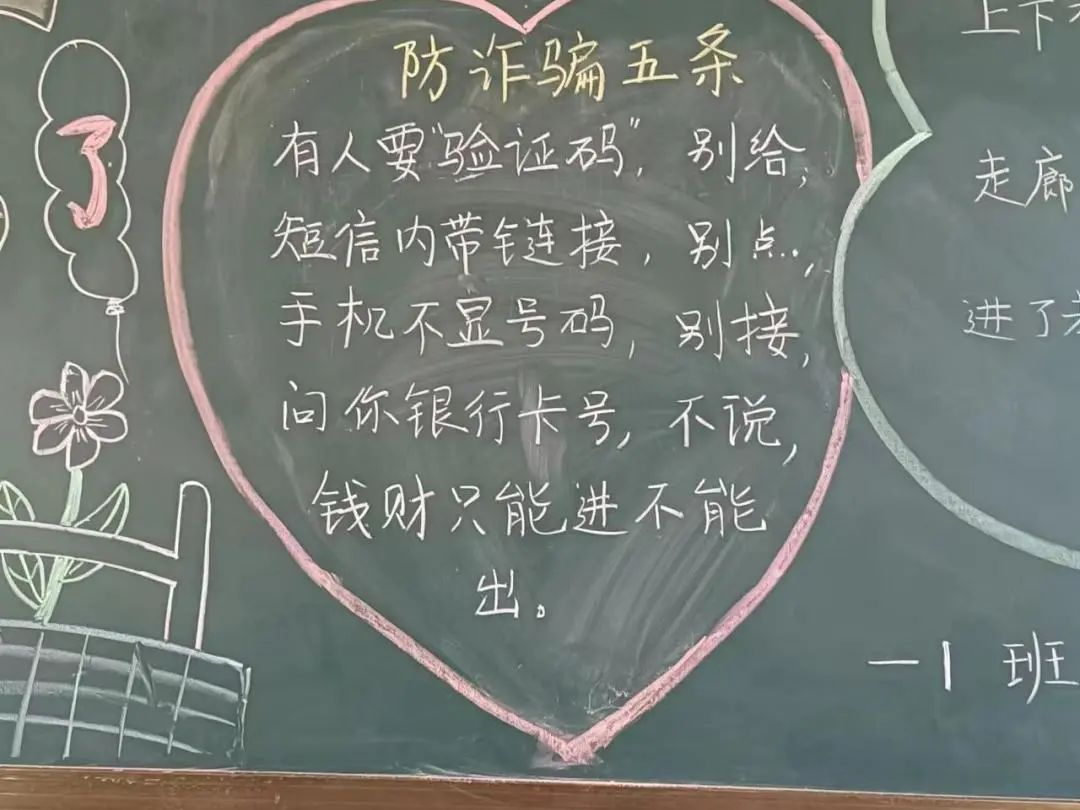 防诈骗五条
有人要"验证码"，别给，
短信内带链接，别点，
手机不显号码，别接，
问你银行卡号，不说，
钱财只能进不能
出。
了
上下
走廊
进了
一1 班